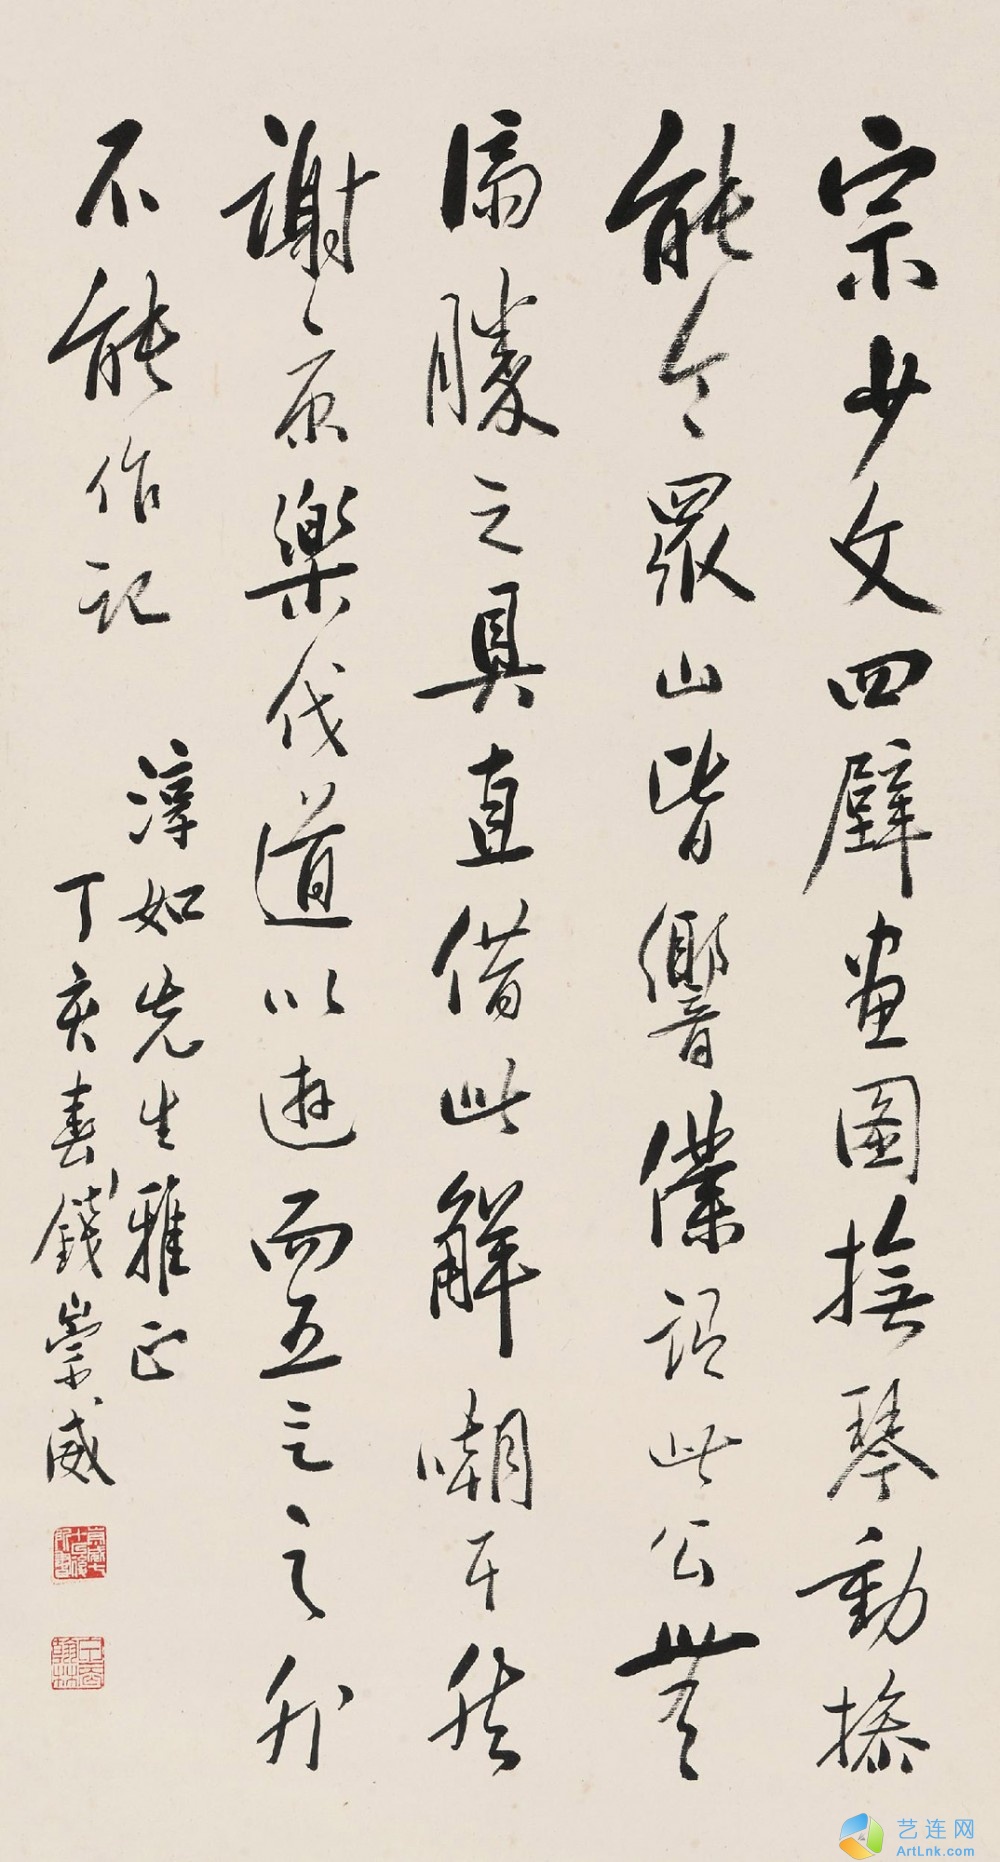 宗少文四壁畫圖撫琴動操
能令眾山皆響僕謂此公無
濟勝之具直借此解嘲耳然
謝康樂伐道以遊而五言之外
不能作記
淳如先生雅正
丁亥春錢崇威
艺连网
ArtLnk.com